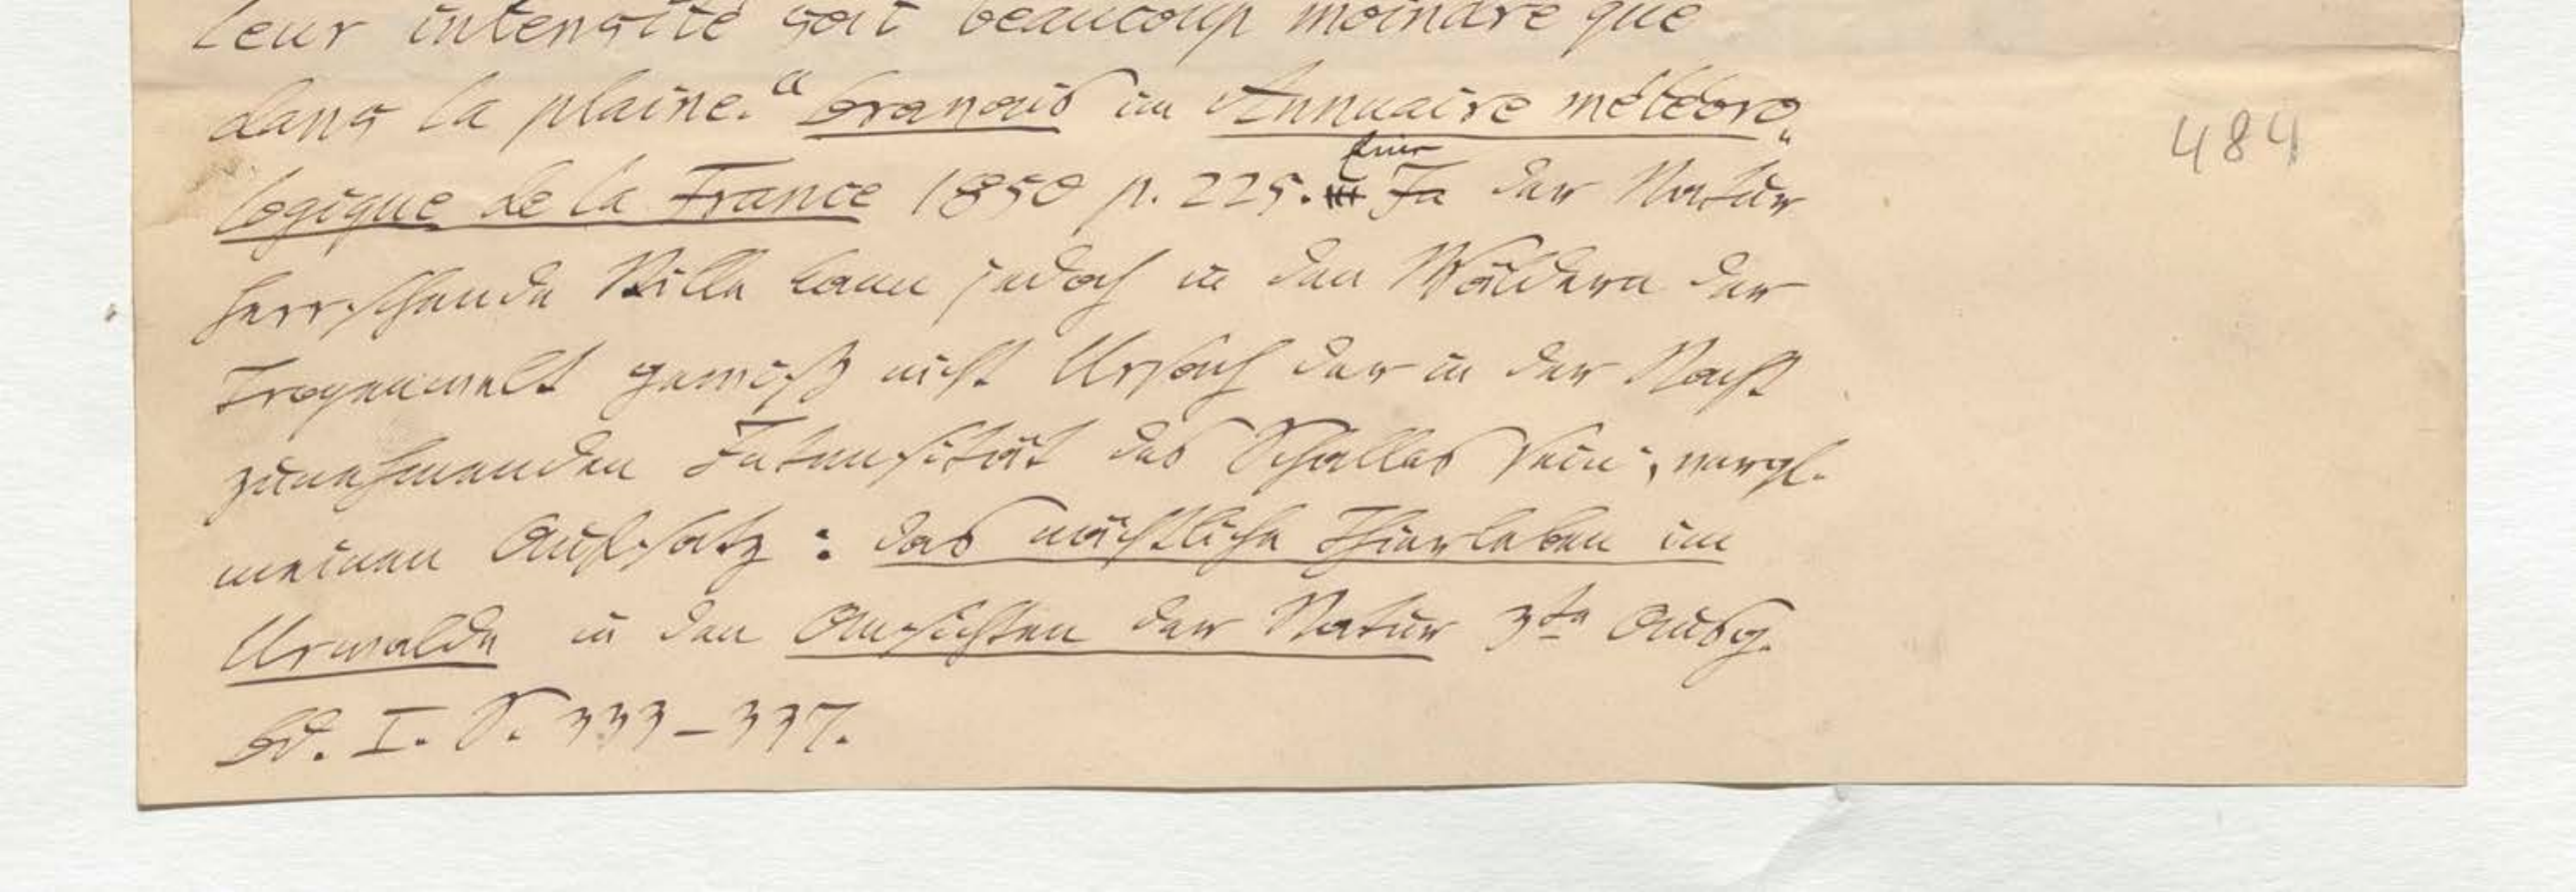 leur intensité soit beaucoup moindre que
dans la plaine.“ Bravais im Annuaire météoro„
logique de la France 1850 p. 225. Die in der Natur
herrschende Stille kann jedoch in den Wäldern der
Tropenwelt gewiß nicht Ursach der in der Nacht
zunehmenden Intensität des Schalles sein; vergl.
meinen Aufsatz: das nächtliche Thierleben im
Urwalde in den Ansichten der Natur 3te Ausg.
Bd. I. S. 333–337.
484